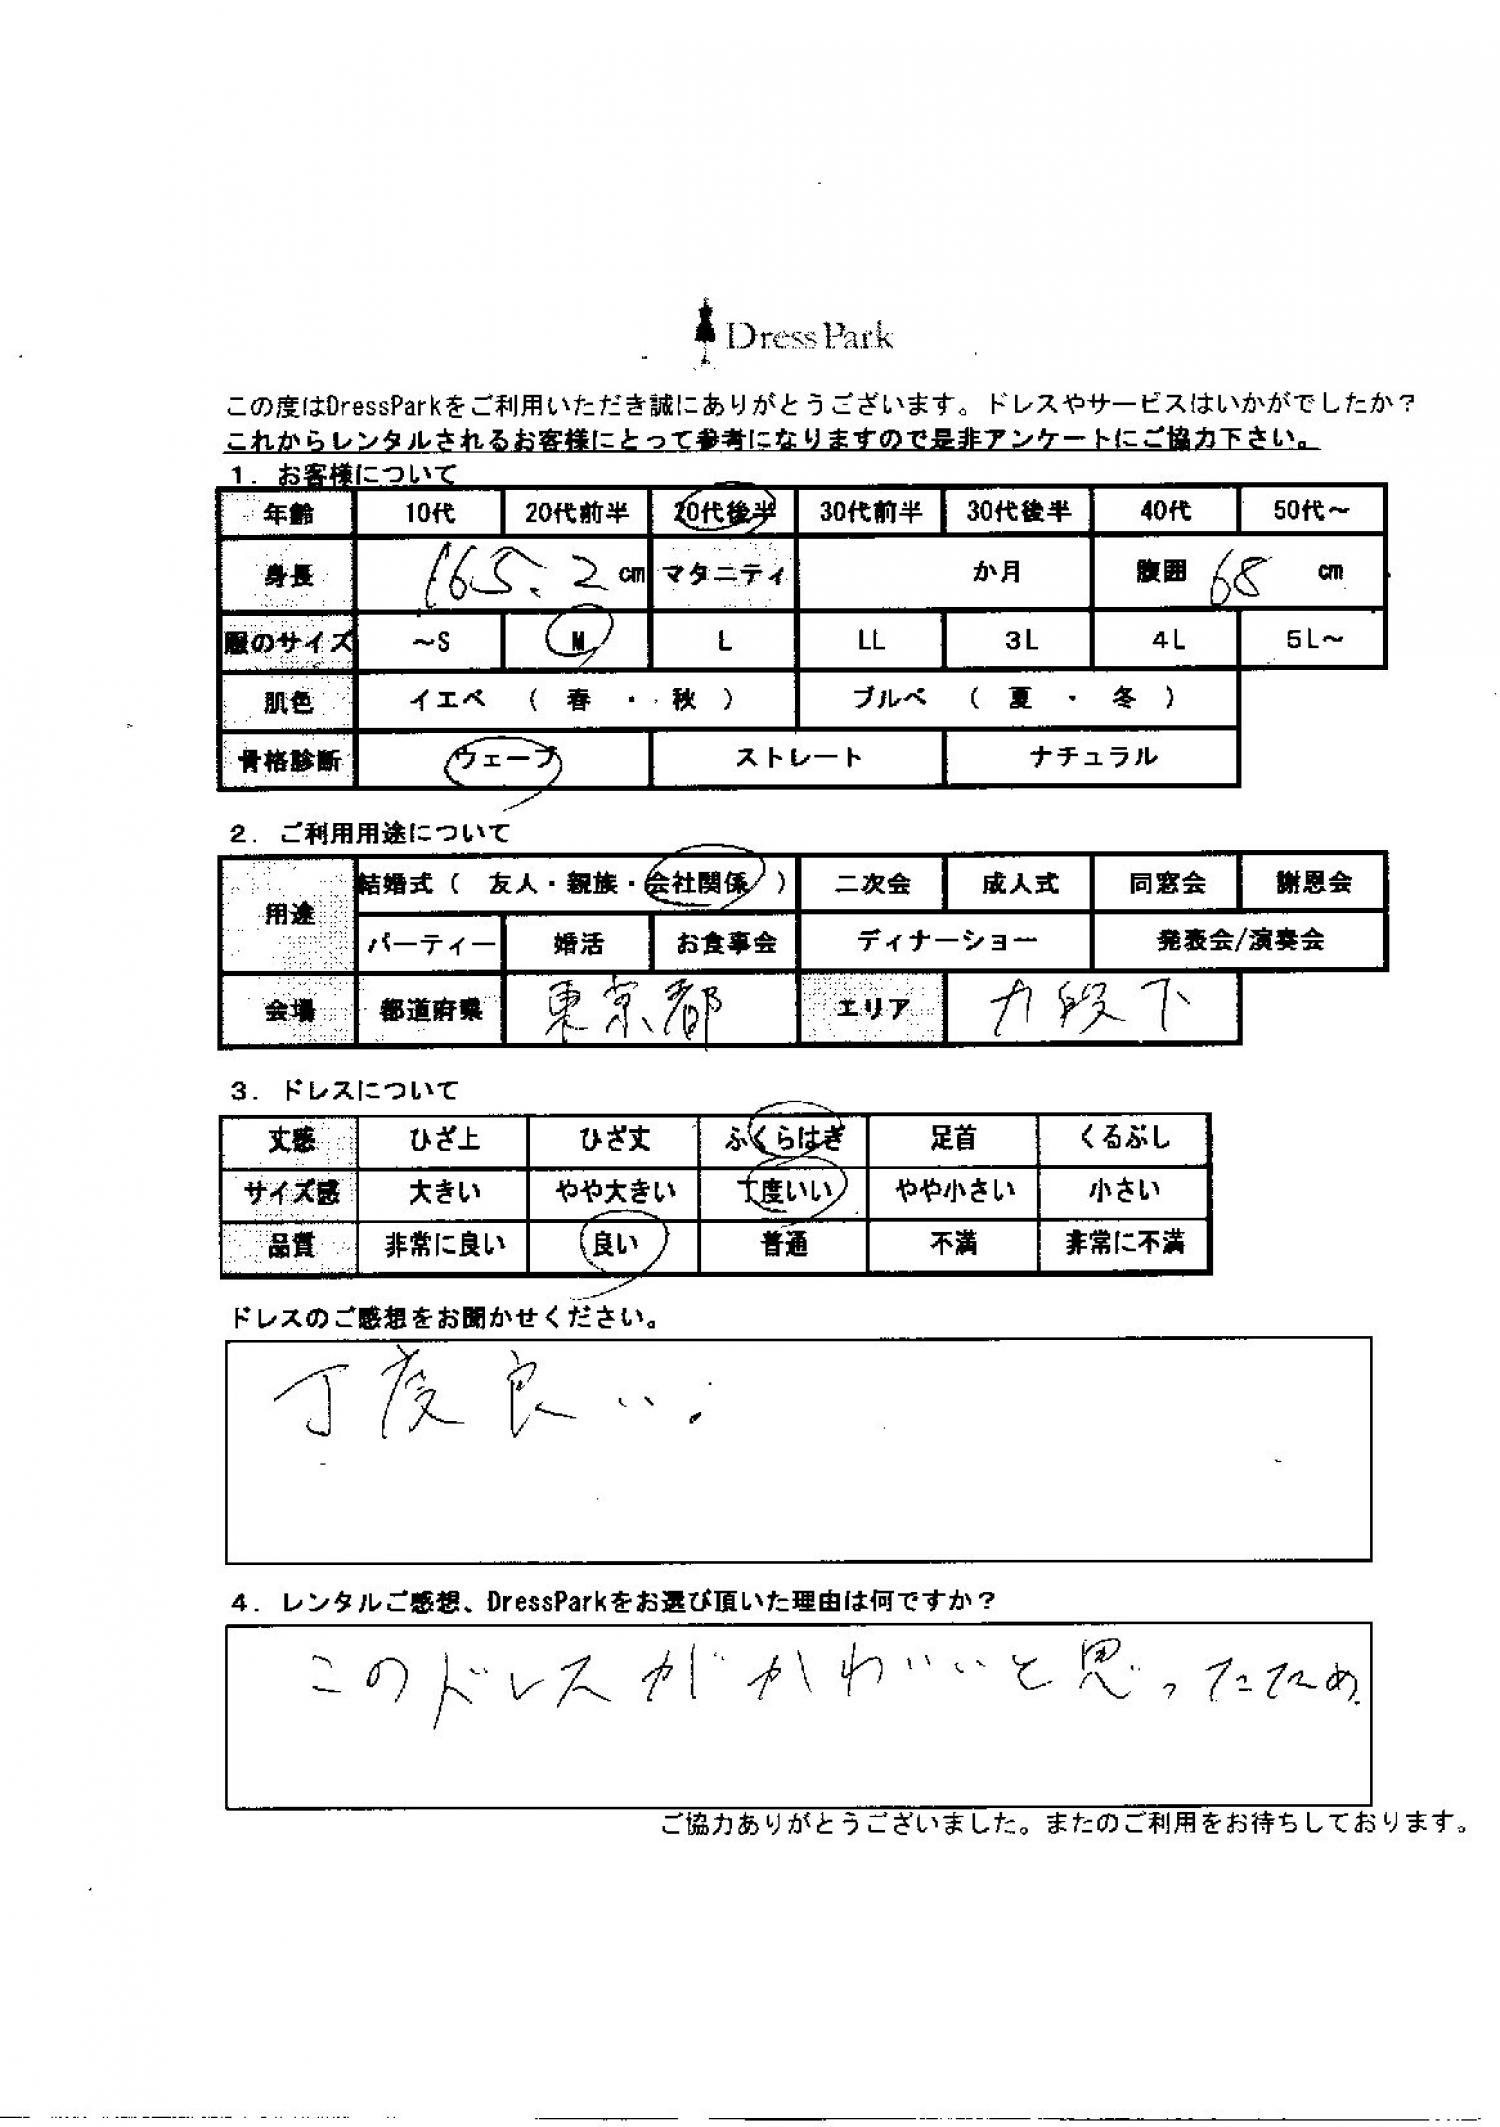 Dress Park
この度はDressParkをご利用いただき誠にありがとうございます。ドレスやサービスはいかがでしたか？
これからレンタルされるお客様にとって参考になりますので是非アンケートにご協力下さい。
1. お客様について
年齢 10代 20代前半 20代後半 30代前半 30代後半 40代 50代～
身長 165.2 cm マタニティ か月 腹囲 68 cm
服のサイズ ～S M L LL 3L 4L 5L～
肌色 イエベ （ 春 ・ 秋 ） ブルベ （ 夏 ・ 冬 ）
骨格診断 ウェーブ ストレート ナチュラル
2. ご利用用途について
用途 結婚式（ 友人・親族・会社関係 ） 二次会 成人式 同窓会 謝恩会
パーティー 婚活 お食事会 ディナーショー 発表会/演奏会
会場 都道府県 東京都 エリア 九段下
3. ドレスについて
丈感 ひざ上 ひざ丈 ふくらはぎ 足首 くるぶし
サイズ感 大きい やや大きい 丁度いい やや小さい 小さい
品質 非常に良い 良い 普通 不満 非常に不満
ドレスのご感想をお聞かせください。
丁度良い.
4. レンタルご感想、DressParkをお選び頂いた理由は何ですか？
このドレスがかわいいと思ったため.
ご協力ありがとうございました。またのご利用をお待ちしております。